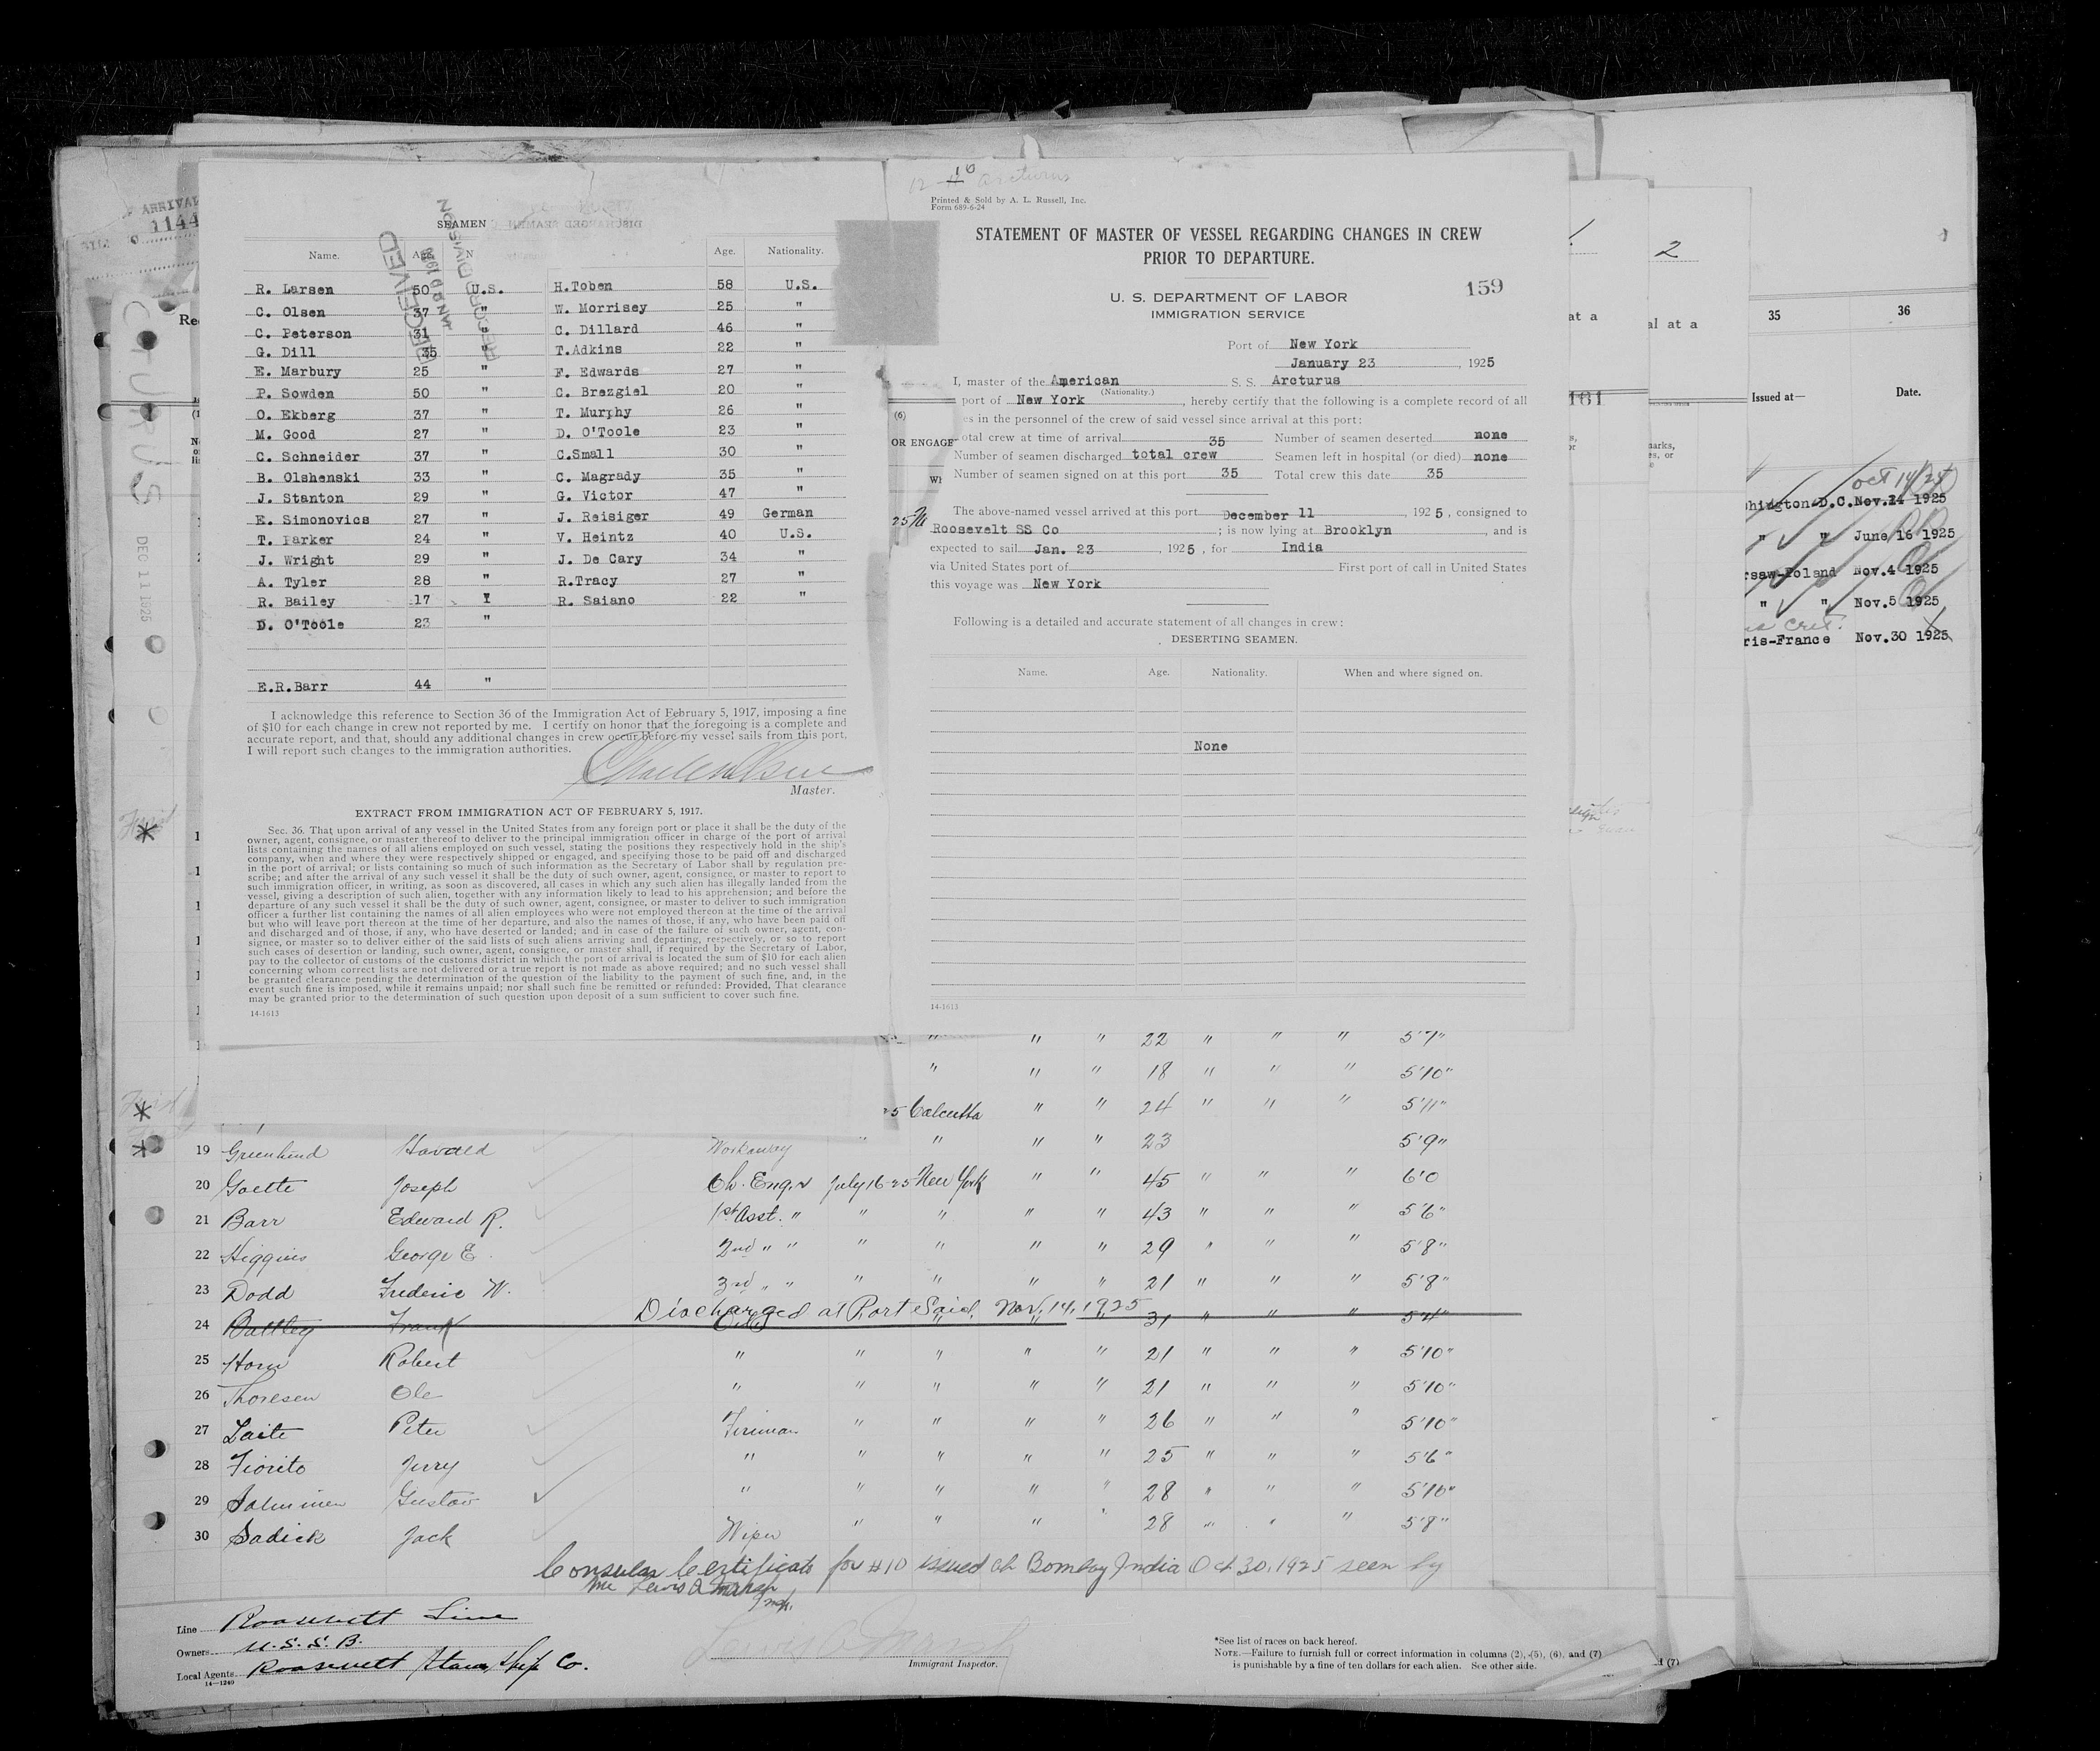 SEAMEN
Name. Age. Nationality.
R. Larsen 50 U.S. H.Toben 58 U.S.
C. Olsen 37 " W. Morrisey 25 "
C. Peterson 31 " C. Dillard 46 "
G. Dill 35 " T.Adkins 22 "
E. Marbury 25 " F. Edwards 27 "
P. Sowden 50 " C. Brezgiel 20 "
O. Ekberg 37 " T. Murphy 26 "
M. Good 27 " D. O'Toole 23 "
C. Schneider 37 " C.Small 30 "
B. Olshenski 33 " C. Magrady 35 "
J. Stanton 29 " G. Victor 47 "
E. Simonovics 27 " J. Reisiger 49 German
T. Parker 24 " V. Heintz 40 U.S.
J. Wright 29 " J. De Cary 34 "
A. Tyler 28 " R.Tracy 27 "
R. Bailey 17 " R. Saiano 22 "
D. O'Toole 23 "
E.R.Barr 44 "
I acknowledge this reference to Section 36 of the Immigration Act of February 5, 1917, imposing a fine
of $10 for each change in crew not reported by me. I certify on honor that the foregoing is a complete and
accurate report, and that, should any additional changes in crew occur before my vessel sails from this port,
I will report such changes to the immigration authorities.
Master.
EXTRACT FROM IMMIGRATION ACT OF FEBRUARY 5, 1917.
Sec. 36. That upon arrival of any vessel in the United States from any foreign port or place it shall be the duty of the
owner, agent, consignee, or master thereof to deliver to the principal immigration officer in charge of the port of arrival
lists containing the names of all aliens employed on such vessel, stating the positions they respectively hold in the ship's
company, when and where they were respectively shipped or engaged, and specifying those to be paid off and discharged
in the port of arrival; or lists containing so much of such information as the Secretary of Labor shall by regulation pre-
scribe; and after the arrival of any such vessel it shall be the duty of such owner, agent, consignee, or master to report to
such immigration officer, in writing, as soon as discovered, all cases in which any such alien has illegally landed from the
vessel, giving a description of such alien, together with any information likely to lead to his apprehension; and before the
departure of any such vessel it shall be the duty of such owner, agent, consignee, or master to deliver to such immigration
officer a further list containing the names of all alien employees who were not employed thereon at the time of the arrival
but who will leave port thereon at the time of her departure, and also the names of those, if any, who have been paid off
and discharged and of those, if any, who have deserted or landed; and in case of the failure of such owner, agent, con-
signee, or master so to deliver either of the said lists of such aliens arriving and departing, respectively, or so to report
such cases of desertion or landing, such owner, agent, consignee, or master shall, if required by the Secretary of Labor,
pay to the collector of customs of the customs district in which the port of arrival is located the sum of $10 for each alien
concerning whom correct lists are not delivered or a true report is not made as above required; and no such vessel shall
be granted clearance pending the determination of the question of the liability to the payment of such fine, and, in the
event such fine is imposed, while it remains unpaid; nor shall such fine be remitted or refunded: Provided, That clearance
may be granted prior to the determination of such question upon deposit of a sum sufficient to cover such fine.
14-1613
Arcturus
Printed & Sold by A. L. Russell, Inc.
Form 689-6-24
STATEMENT OF MASTER OF VESSEL REGARDING CHANGES IN CREW
PRIOR TO DEPARTURE.
159
U. S. DEPARTMENT OF LABOR
IMMIGRATION SERVICE
Port of New York
January 23, 1925
I, master of the American S. S. Arcturus
(Nationality.)
port of New York, hereby certify that the following is a complete record of all
es in the personnel of the crew of said vessel since arrival at this port:
otal crew at time of arrival 35 Number of seamen deserted none
Number of seamen discharged total crew Seamen left in hospital (or died) none
Number of seamen signed on at this port 35 Total crew this date 35
The above-named vessel arrived at this port December 11, 1925, consigned to
Roosevelt SS Co; is now lying at Brooklyn, and is
expected to sail Jan. 23, 1925, for India
via United States port of First port of call in United States
this voyage was New York
Following is a detailed and accurate statement of all changes in crew:
DESERTING SEAMEN.
Name. Age. Nationality. When and where signed on.
None
14-1613
ARRIVAL
1144
DEC 11 1925
RECEIVED
(6)
OR ENGAGE
2
at a
al at a
35 36
Issued at— Date.
181
Oct 14/24
hington-D.C. Nov.24 1925
" " June 16 1925
rsaw-Poland Nov.4 1925
" " Nov.5 1925
ris-France Nov.30 1925
" " " 22 " " " 5'7"
" " " 18 " " " 5'10"
25 Calcutta " " 24 " " " 5'11"
19 Greenhind Harald Workaway " " " " 23 5'9"
20 Goette Joseph Ch. Engr July 16 25 New York " " 45 " " " 6'0
21 Barr Edward R. 1st Asst. " " " " " 43 " " " 5'6"
22 Higgins George E. 2nd " " " " " " 29 " " " 5'8"
23 Dodd Frederic W. 3rd " " " " " " 21 " " " 5'8"
Discharged at Port Said, Nov. 14, 1925
24 Battley Frank Oiler " " 31 " " " 5'4"
25 Horn Robert " " " " " 21 " " " 5'10"
26 Thoresen Ole " " " " " 21 " " " 5'10"
27 Laite Peter Fireman " " " " 26 " " " 5'10"
28 Fiorito Jerry " " " " " 25 " " " 5'6"
29 Salminen Gustav " " " " " 28 " " " 5'10"
30 Sadick Jack Wiper " " " " 28 " " " 5'8"
Consular Certificate for #10 issued at Bombay India Oct 30, 1925 seen by
me Lewis A Marsh
Insp.
Line Roosevelt Line
Owners U.S.S.B.
Local Agents Roosevelt Steam Ship Co.
14—1240
Immigrant Inspector.
*See list of races on back hereof.
NOTE.—Failure to furnish full or correct information in columns (2), (5), (6), and (7)
is punishable by a fine of ten dollars for each alien. See other side.